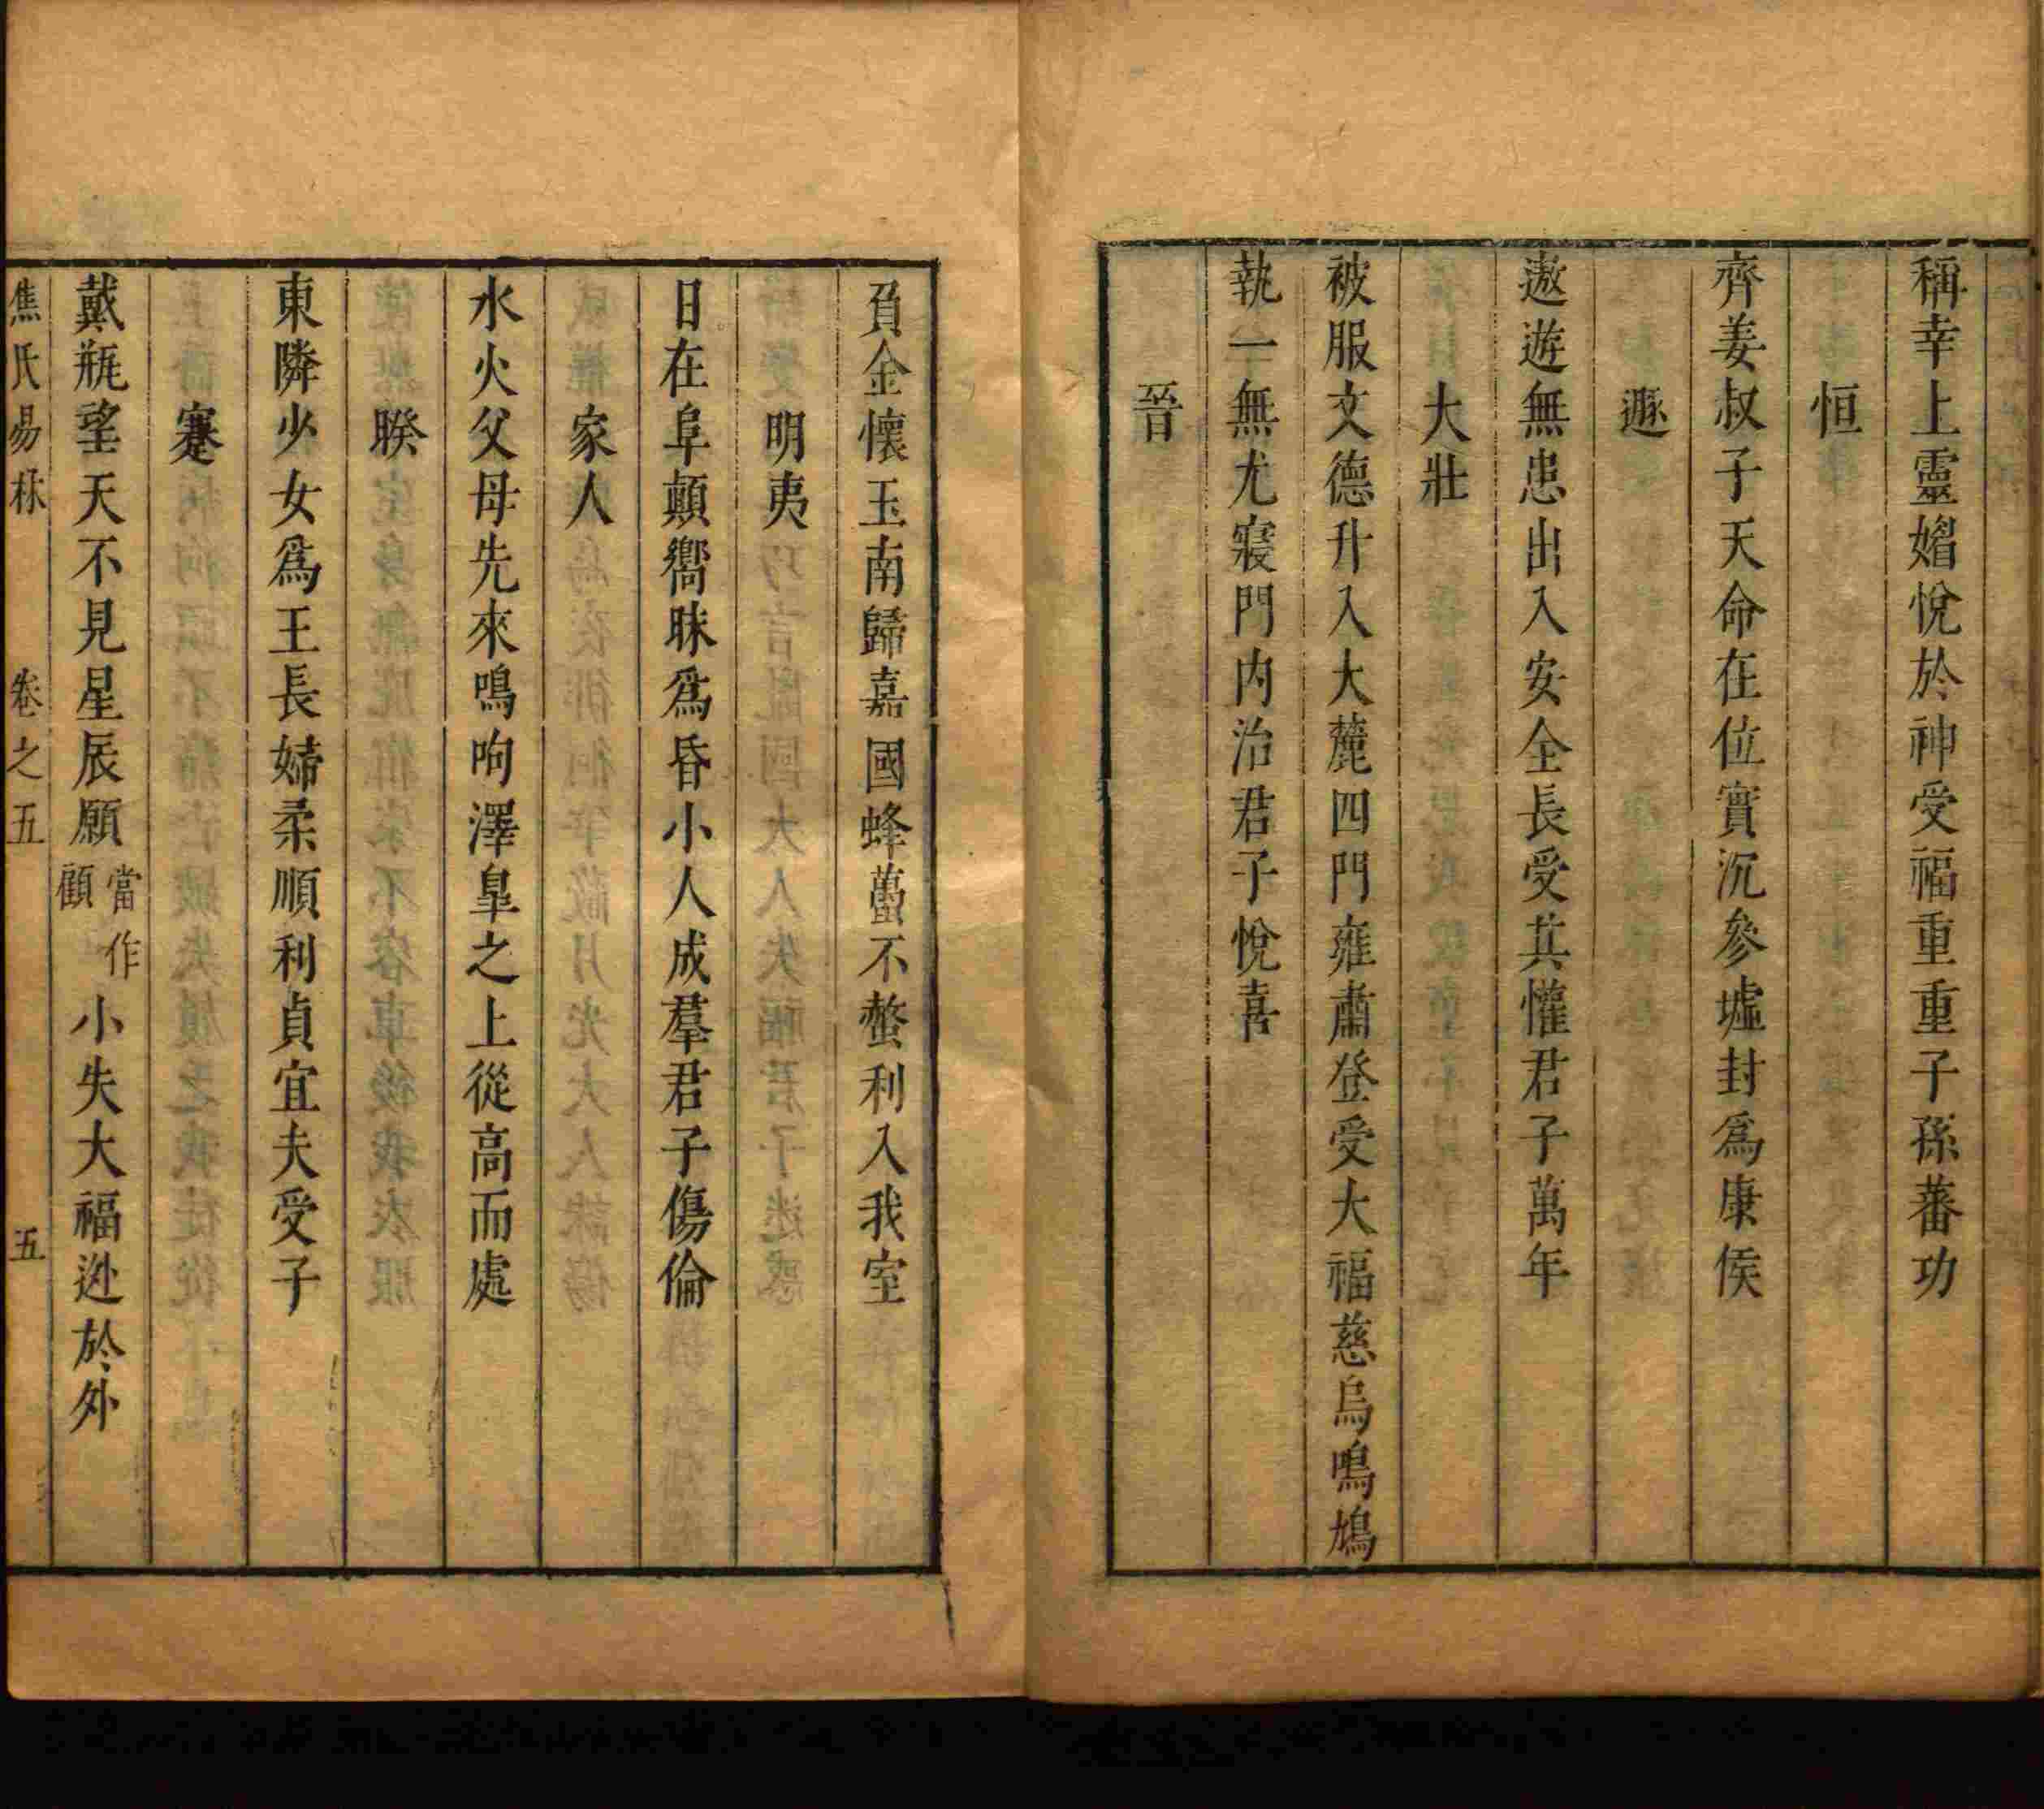 稱幸上靈媚悅於神受福重重子孫蕃功
恒
齊姜叔子天命在位實沉參墟封爲康侯
遯
遨遊無患出入安全長受其懽君子萬年
大壯
被服文德升入大麓四門雍肅登受大福慈烏鳴鳩
執一無尤寢門內治君子悅喜
晉
負金懷玉南歸嘉國蜂蠆不螫利入我室
明夷
日在阜顛嚮昧爲昏小人成羣君子傷倫
家人
水火父母先來鳴呴澤臯之上從高而處
睽
東隣少女爲王長婦柔順利貞宜夫受子
蹇
戴瓶望天不見星辰願當作顧小失大福逃於外
焦氏易林 卷之五 五